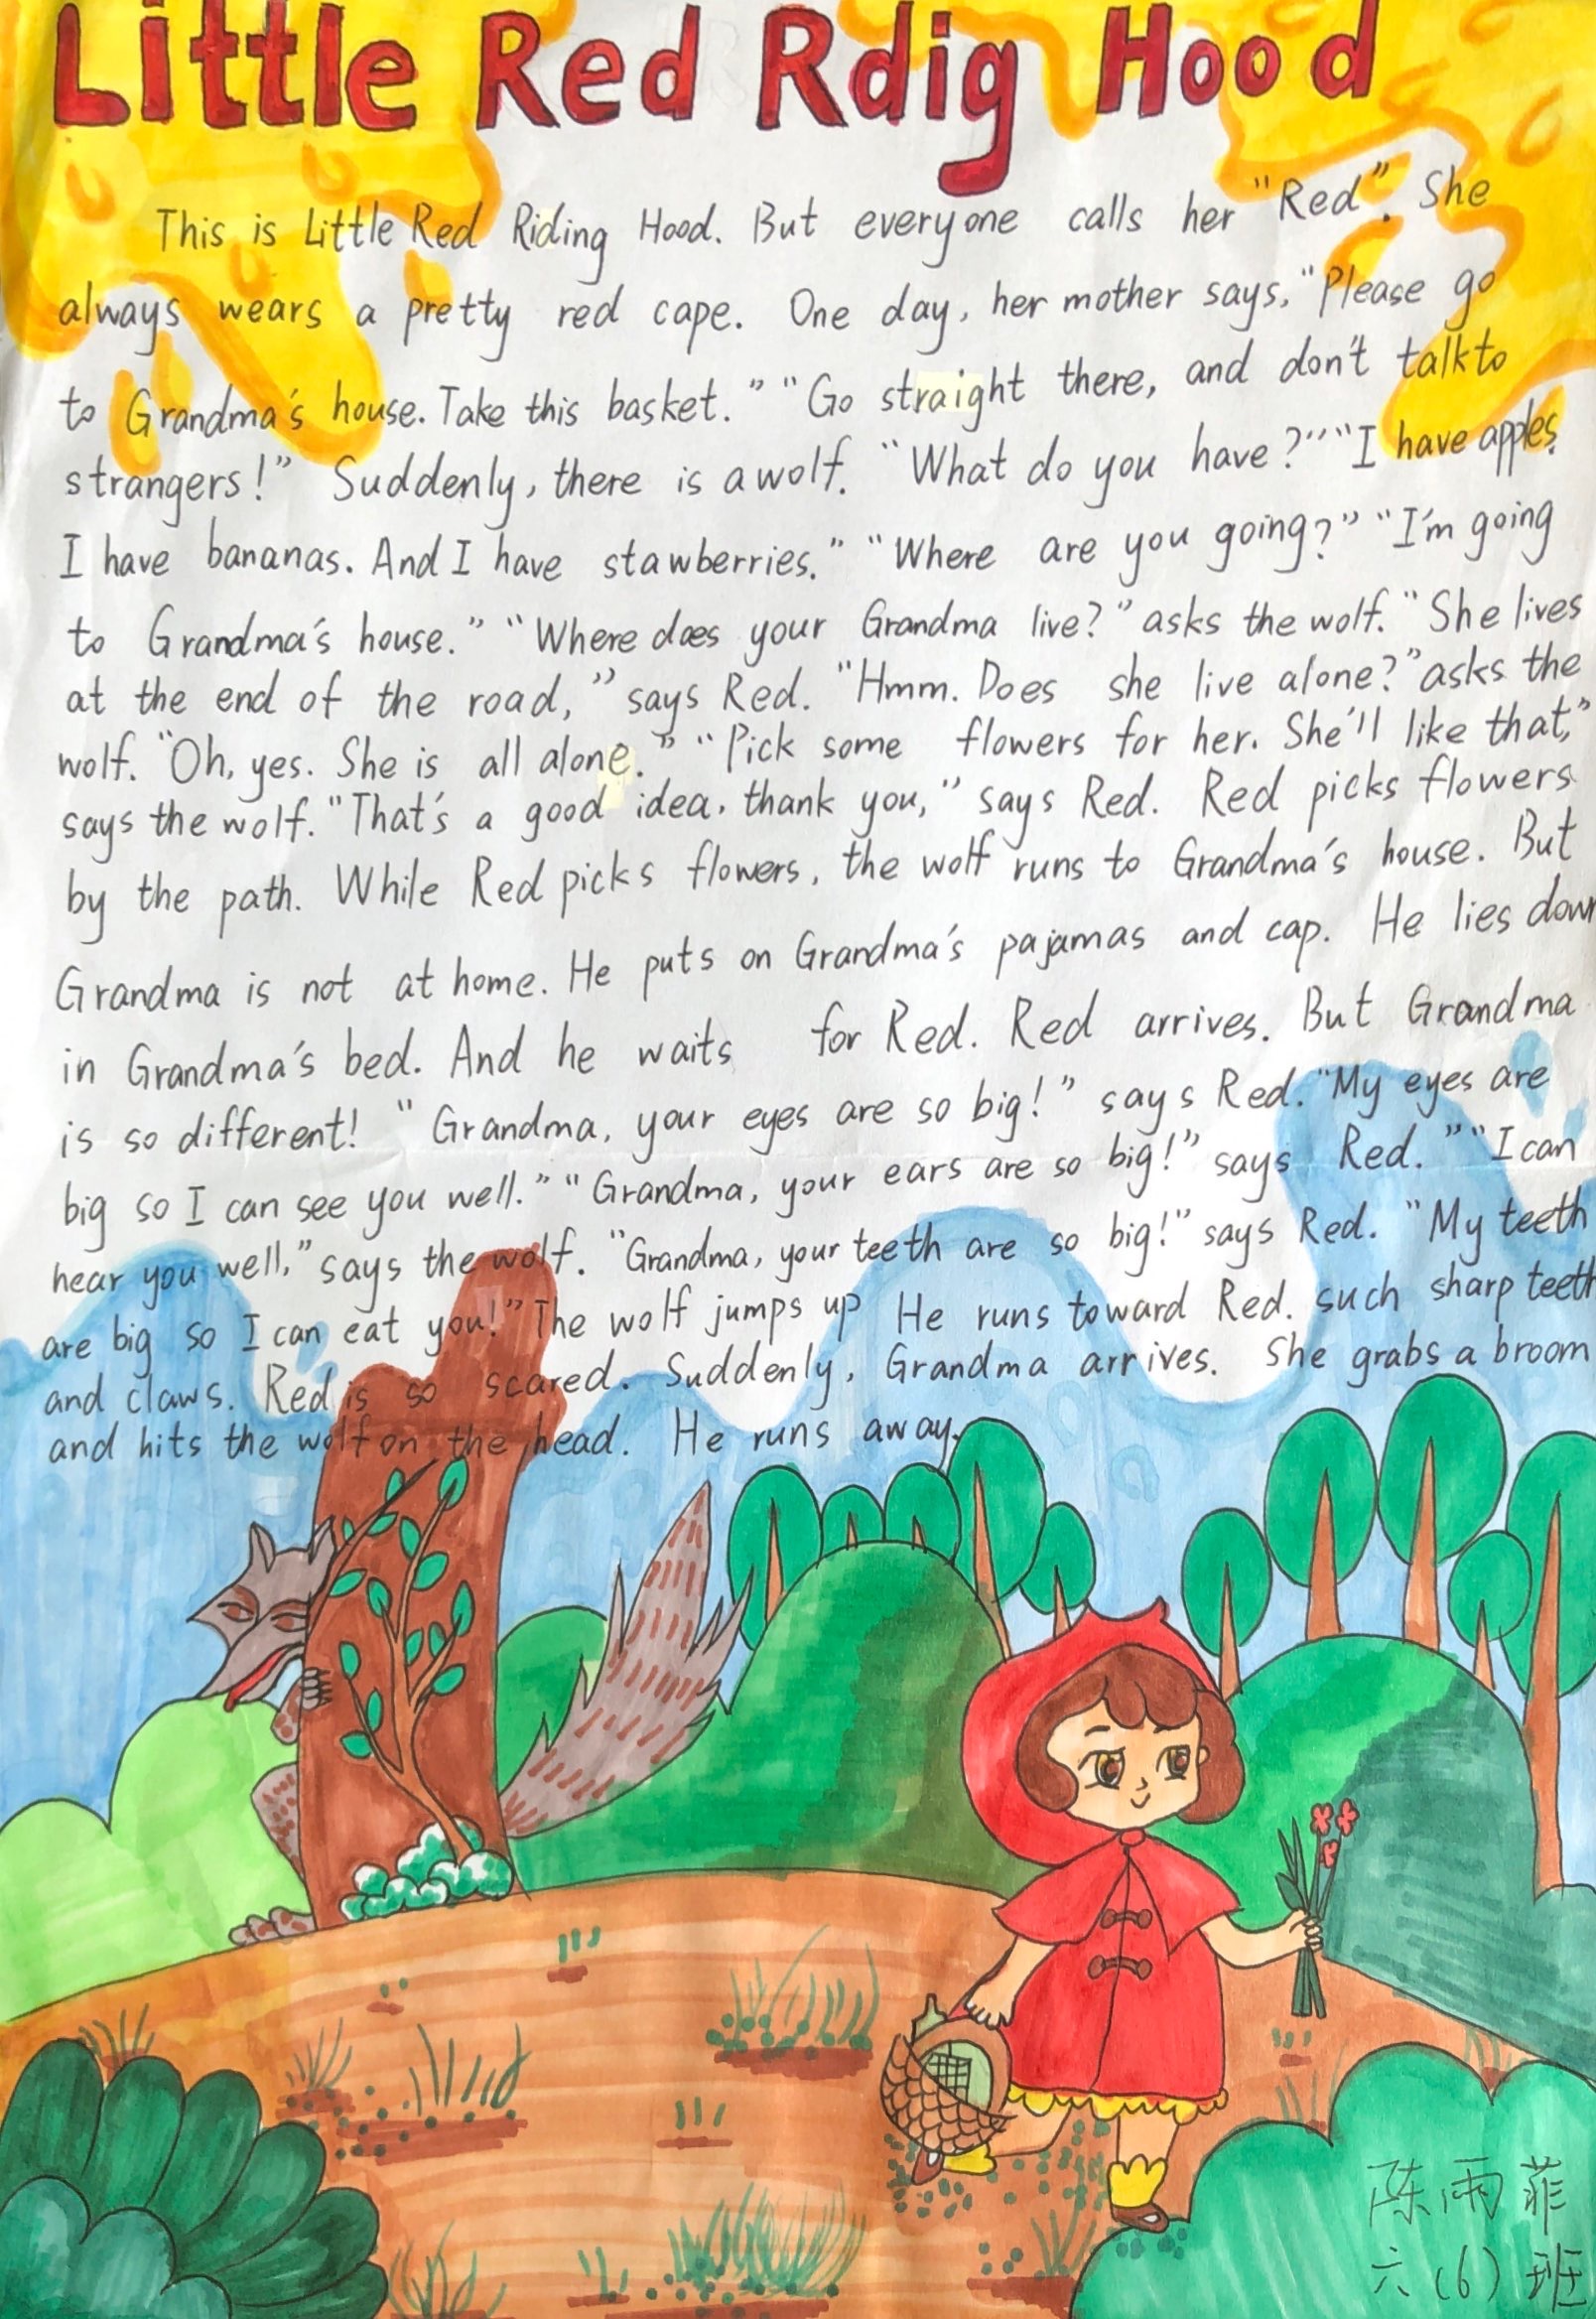 Little Red Rdig Hood
This is Little Red Riding Hood. But everyone calls her "Red". She
always wears a pretty red cape. One day, her mother says, "Please go
to Grandma's house. Take this basket." "Go straight there, and don't talk to
strangers!" Suddenly, there is a wolf. "What do you have?" "I have apples.
I have bananas. And I have stawberries." "Where are you going?" "I'm going
to Grandma's house." "Where does your Grandma live?" asks the wolf. "She lives
at the end of the road," says Red. "Hmm. Does she live alone?" asks the
wolf. "Oh, yes. She is all alone." "Pick some flowers for her. She'll like that,"
says the wolf. "That's a good idea, thank you," says Red. Red picks flowers
by the path. While Red picks flowers, the wolf runs to Grandma's house. But
Grandma is not at home. He puts on Grandma's pajamas and cap. He lies down
in Grandma's bed. And he waits for Red. Red arrives. But Grandma
is so different! "Grandma, your eyes are so big!" says Red. "My eyes are
big so I can see you well." "Grandma, your ears are so big!" says Red." "I can
hear you well," says the wolf. "Grandma, your teeth are so big!" says Red. "My teeth
are big so I can eat you!" The wolf jumps up He runs toward Red. such sharp teeth
and claws. Red is so scared. Suddenly, Grandma arrives. She grabs a broom
and hits the wolf on the head. He runs away.
陈雨菲
六(6)班